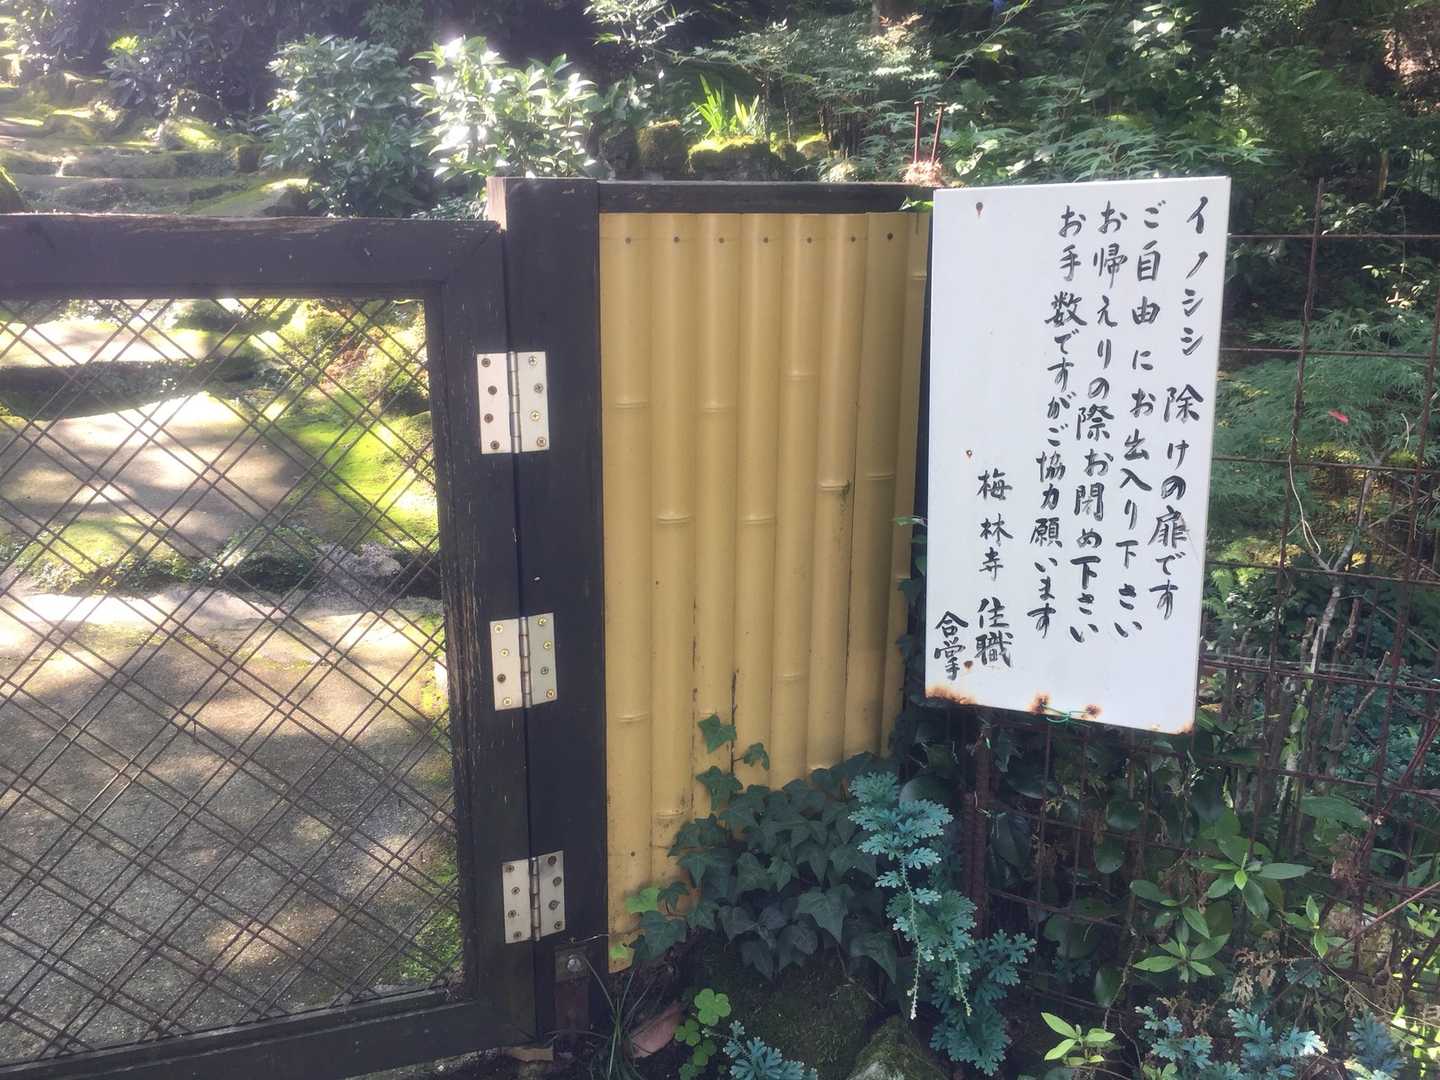 イノシシ除けの扉です
ご自由にお出入り下さい
お帰えりの際お閉め下さい
お手数ですがご協力願います
梅林寺 住職
合掌